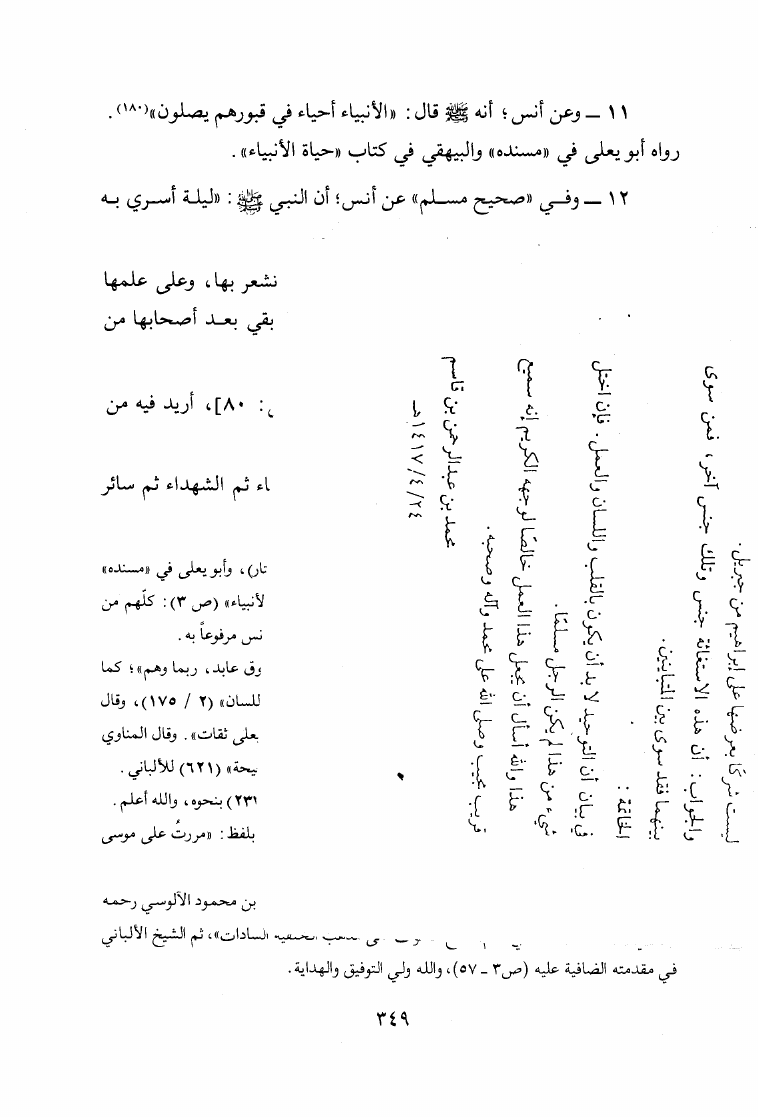 ١١ ــ وعن أنس؛ أنه ﷺ قال: «الأنبياء أحياء في قبورهم يصلون»(١٨٠).
رواه أبو يعلى في «مسنده» والبيهقي في كتاب «حياة الأنبياء».
١٢ ــ وفي «صحيح مسلم» عن أنس؛ أن النبي ﷺ: «ليلة أسري به
نشعر بها، وعلى علمها
بقي بعد أصحابها من
: ٨٠]، أريد فيه من
اء ثم الشهداء ثم سائر
تار)، وأبو يعلى في «مسنده»
لأنبياء» (ص ٣): كلّهم من
نس مرفوعاً به.
وق عابد، ربما وهم»؛ كما
للسان» (٢ / ١٧٥)، وقال
يعلى ثقات». وقال المناوي
يحة» (٦٢١) للألباني.
٢٣١) بنحوه، والله أعلم.
بلفظ: «مررتُ على موسى
بن محمود الآلوسي رحمه
السادات»، ثم الشيخ الألباني
في مقدمته الضافية عليه (ص٣ ــ ٥٧)، والله ولي التوفيق والهداية.
ليست شركًا بعرضها على إبراهيم من جبريل.
والجواب: أن هذه الاستغاثة جنس وتلك جنس آخر، فمن سوى
بينهما فقد سوى بين المتباينين.
الخاتمة:
في بيان أن التوحيد لا بد أن يكون بالقلب واللسان والعمل. فإن اختل
شيء من هذا لم يكن الرجل مسلمًا.
هذا والله أسأل أن يجعل هذا العمل خالصًا لوجهه الكريم إنه سميع
قريب مجيب وصلى الله على محمد وآله وصحبه.
محمد بن عبدالرحمن بن قاسم
١٤١٧/٤/٢٤هـ
٣٤٩